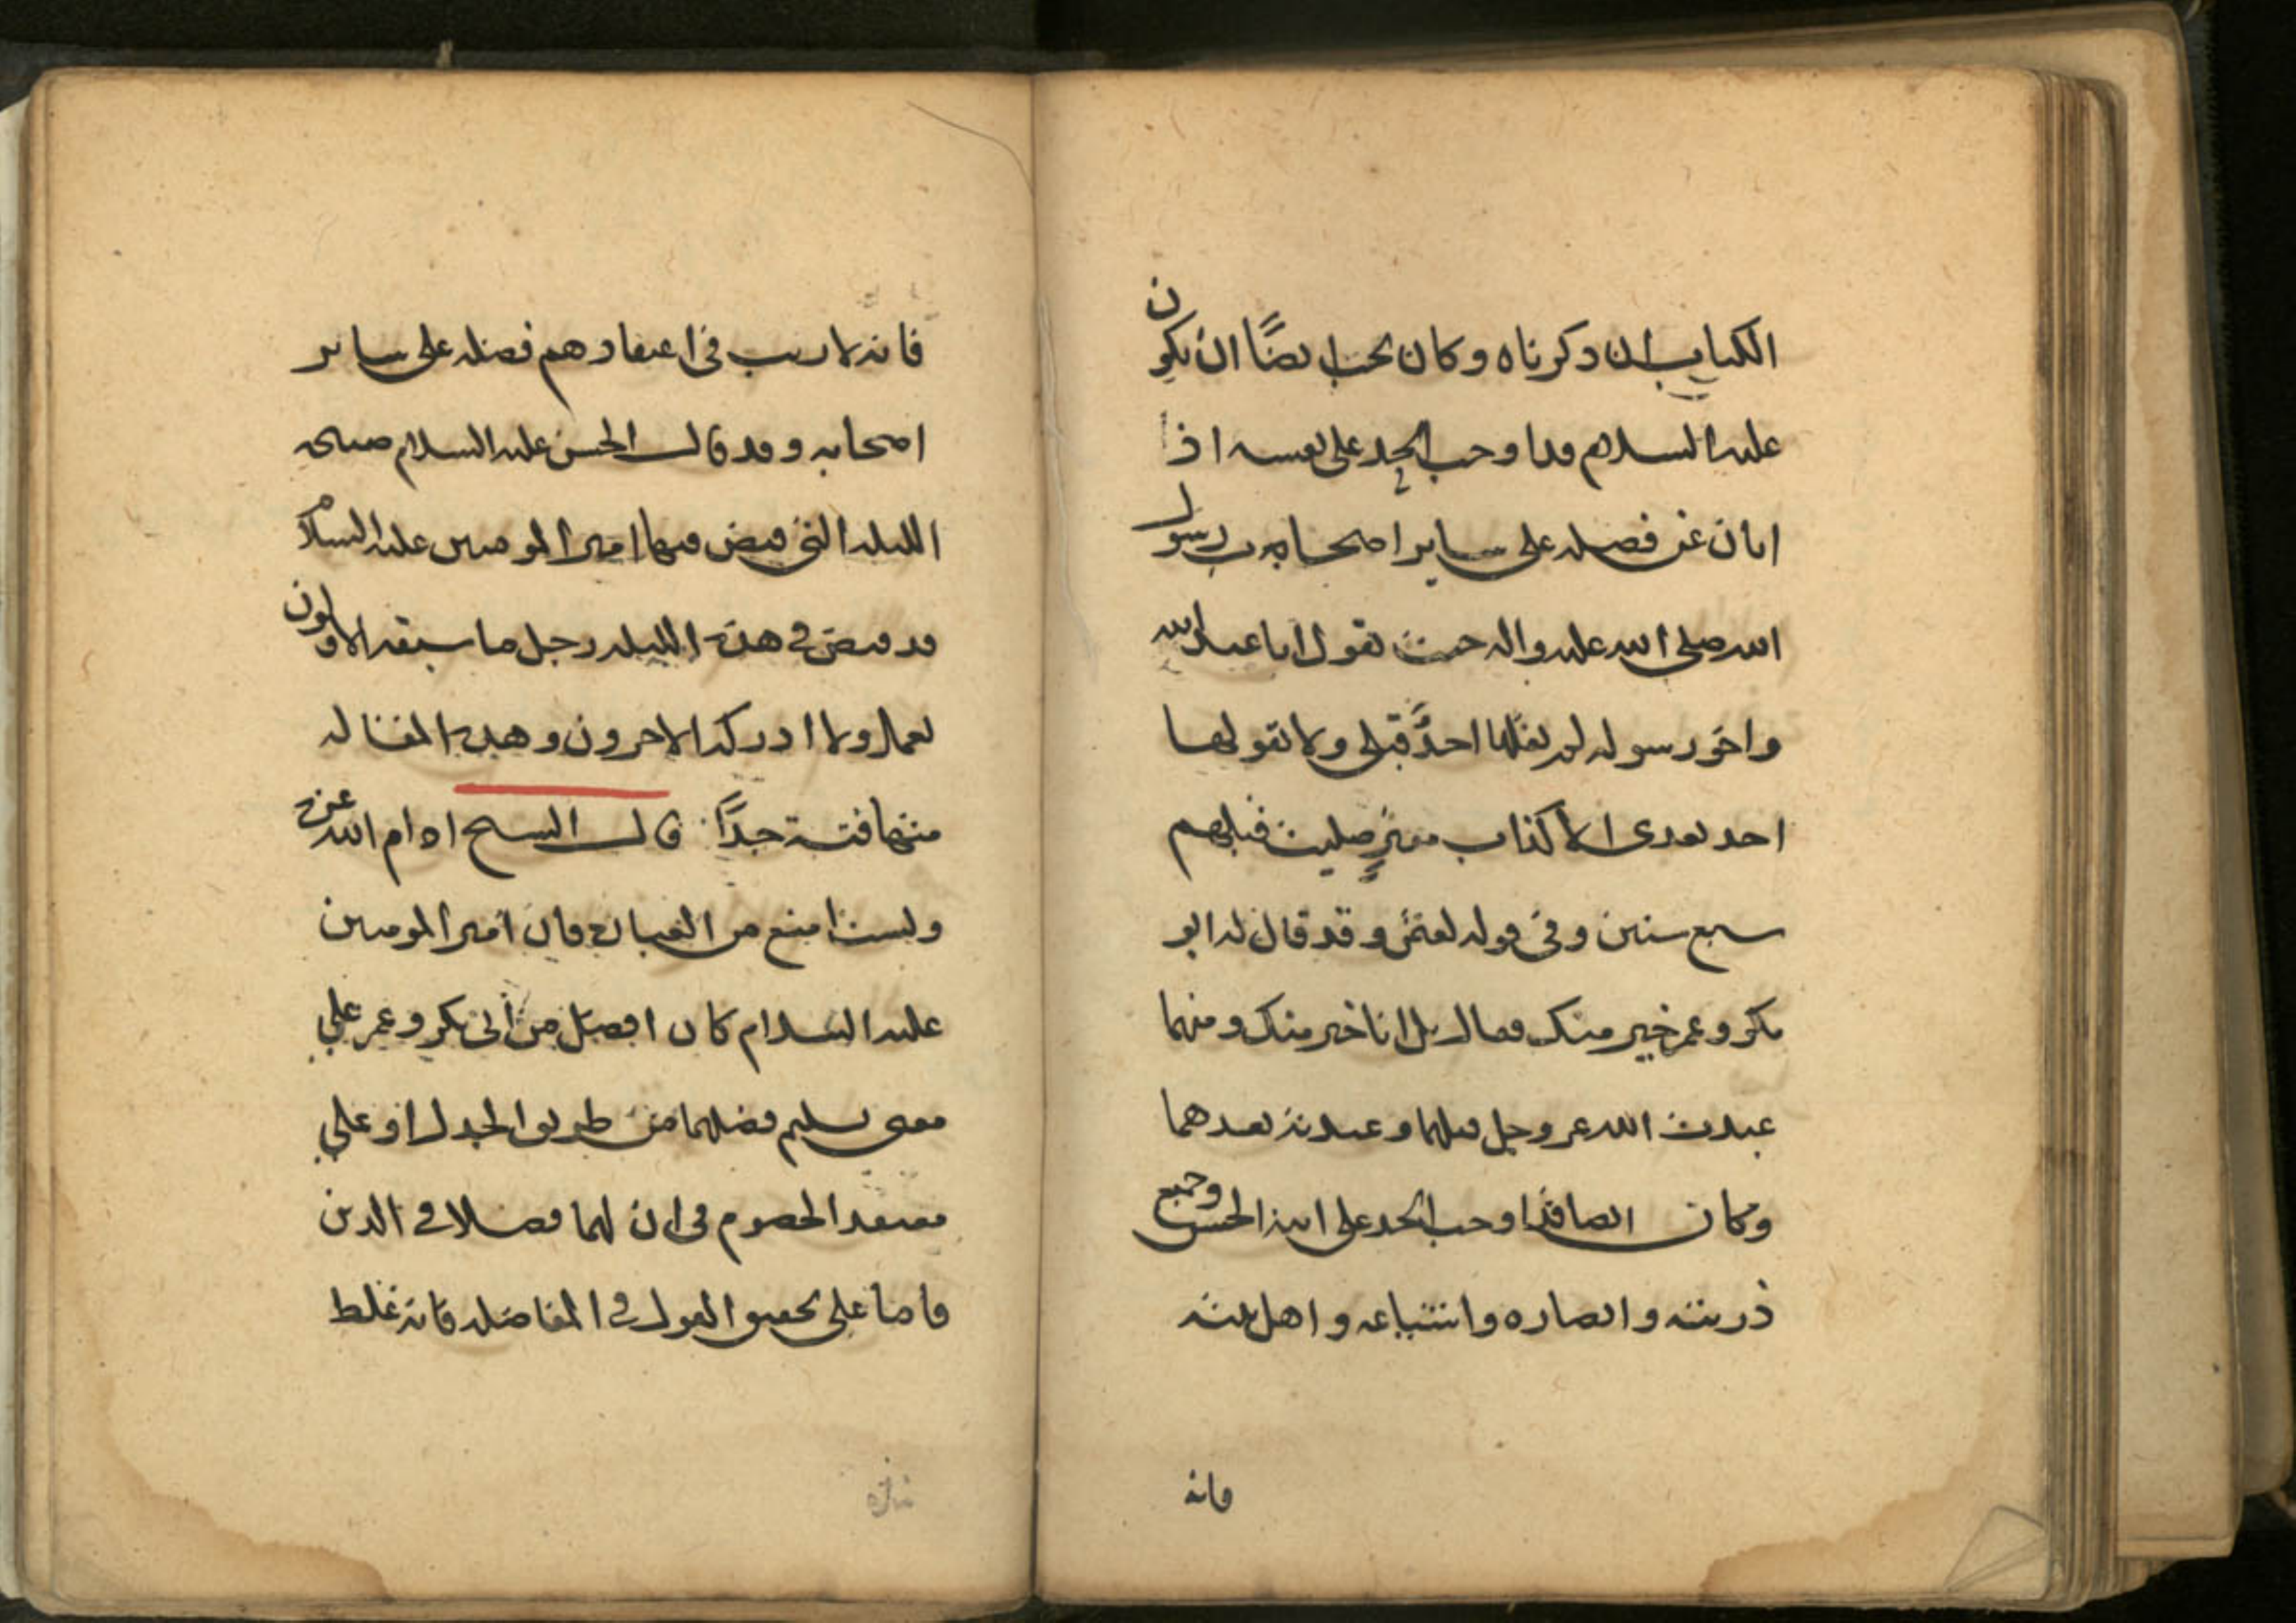 الكتاب ان ذكرناه وكان يجب ايضًا ان يكون
عليه السلام قد اوجب الحد على نفسه اذا
ابان عن فضله على ساير اصحابه ب رسول
الله صلى الله عليه واله حيث يقول انا عبد الله
واخو رسوله لم يقلها احدٌ قبلى ولا يقولها
احد بعدى الا كذاب مفترٍ صليت قبلهم
سبع سنين وفى قوله لعثمن وقد قال له ابو
بكر وعمر خير منك فقال بل انا خير منك ومنهما
عبدت الله عز وجل قبلهما وعبدته بعدهما
وكان ايضا قد اوجب الحد على ابنه الحسن وجميع
ذريته وانصاره واشياعه واهل بيته
فانه
فانه لا ريب فى اعتقادهم فضله على ساير
اصحابه وقد قال الحسن عليه السلام صبيحة
الليله التى قبض فيها امير المومنين عليه السلام
قد قبض فى هذه الليله رجل ما سبقه الاولون
بعمل ولا ادركه الاخرون وهذه المقاله
متهافتة جدًا قال الشيخ ادام الله عزه
ولست امنع من العبارة فان امير المومنين
عليه السلام كان افضل من ابى بكر وعمر على
معنى تسليم فضلهما من طريق الجدل او على
معتقد الخصوم فى ان لهما فضلا فى الدين
فاما على تحقيق القول فى المفاضله فانه غلط